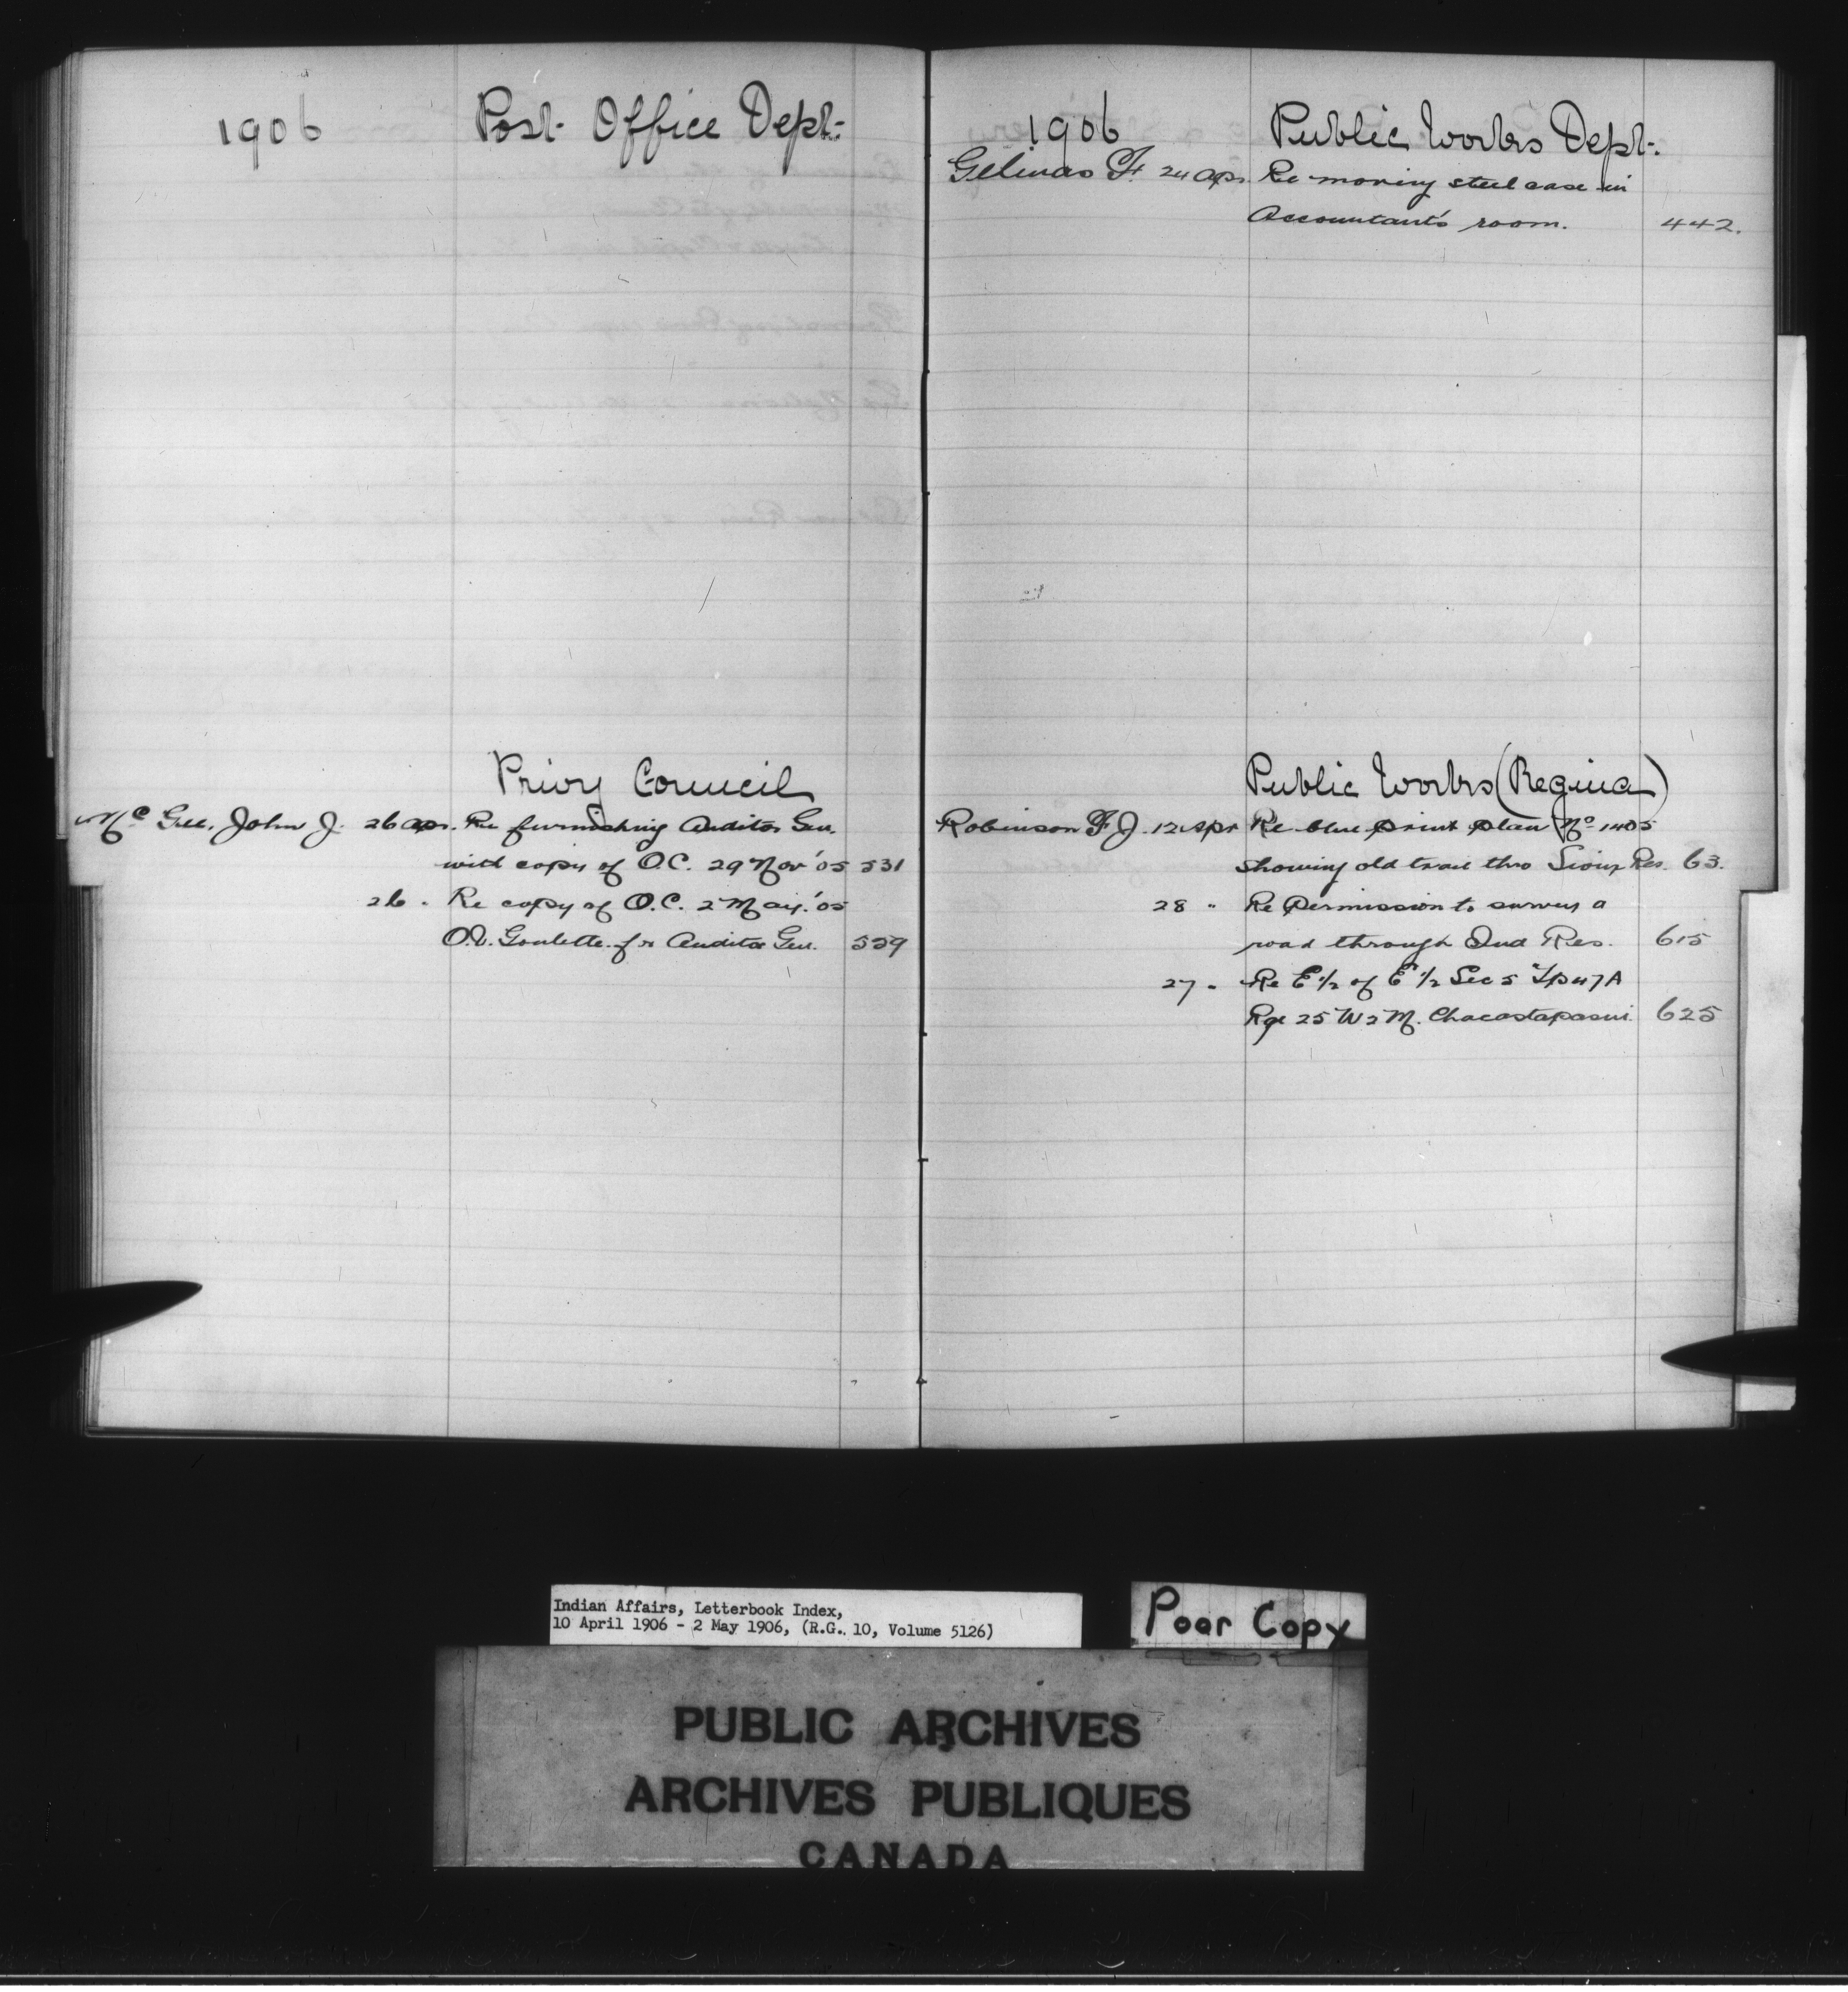 1906 Post Office Dept.
Privy Council
McGee, John J. 26 Apr. Re furnishing Auditor Gen.
with copy of O.C. 29 Nov '05 531
26 " Re copy of O.C. 2 May '05
Goulette for Auditor Gen. 559
1906 Public Works Dept.
Gelinas F. 24 Apr. Re moving steel case in
Accountant's room. 442.
Public Works (Regina)
Robinson F J. 12 Apr Re blue print plan No 1405
showing old trail thro Sioux Res. 63.
28 " Re Permission to survey a
road through Ind Res. 615
27 " Re E 1/2 of E 1/2 Sec 5 Tp 47A
Rge 25 W 2 M. Chacastapasin. 625
Indian Affairs, Letterbook Index,
10 April 1906 - 2 May 1906, (R.G. 10, Volume 5126)
Poor Copy
PUBLIC ARCHIVES
ARCHIVES PUBLIQUES
CANADA